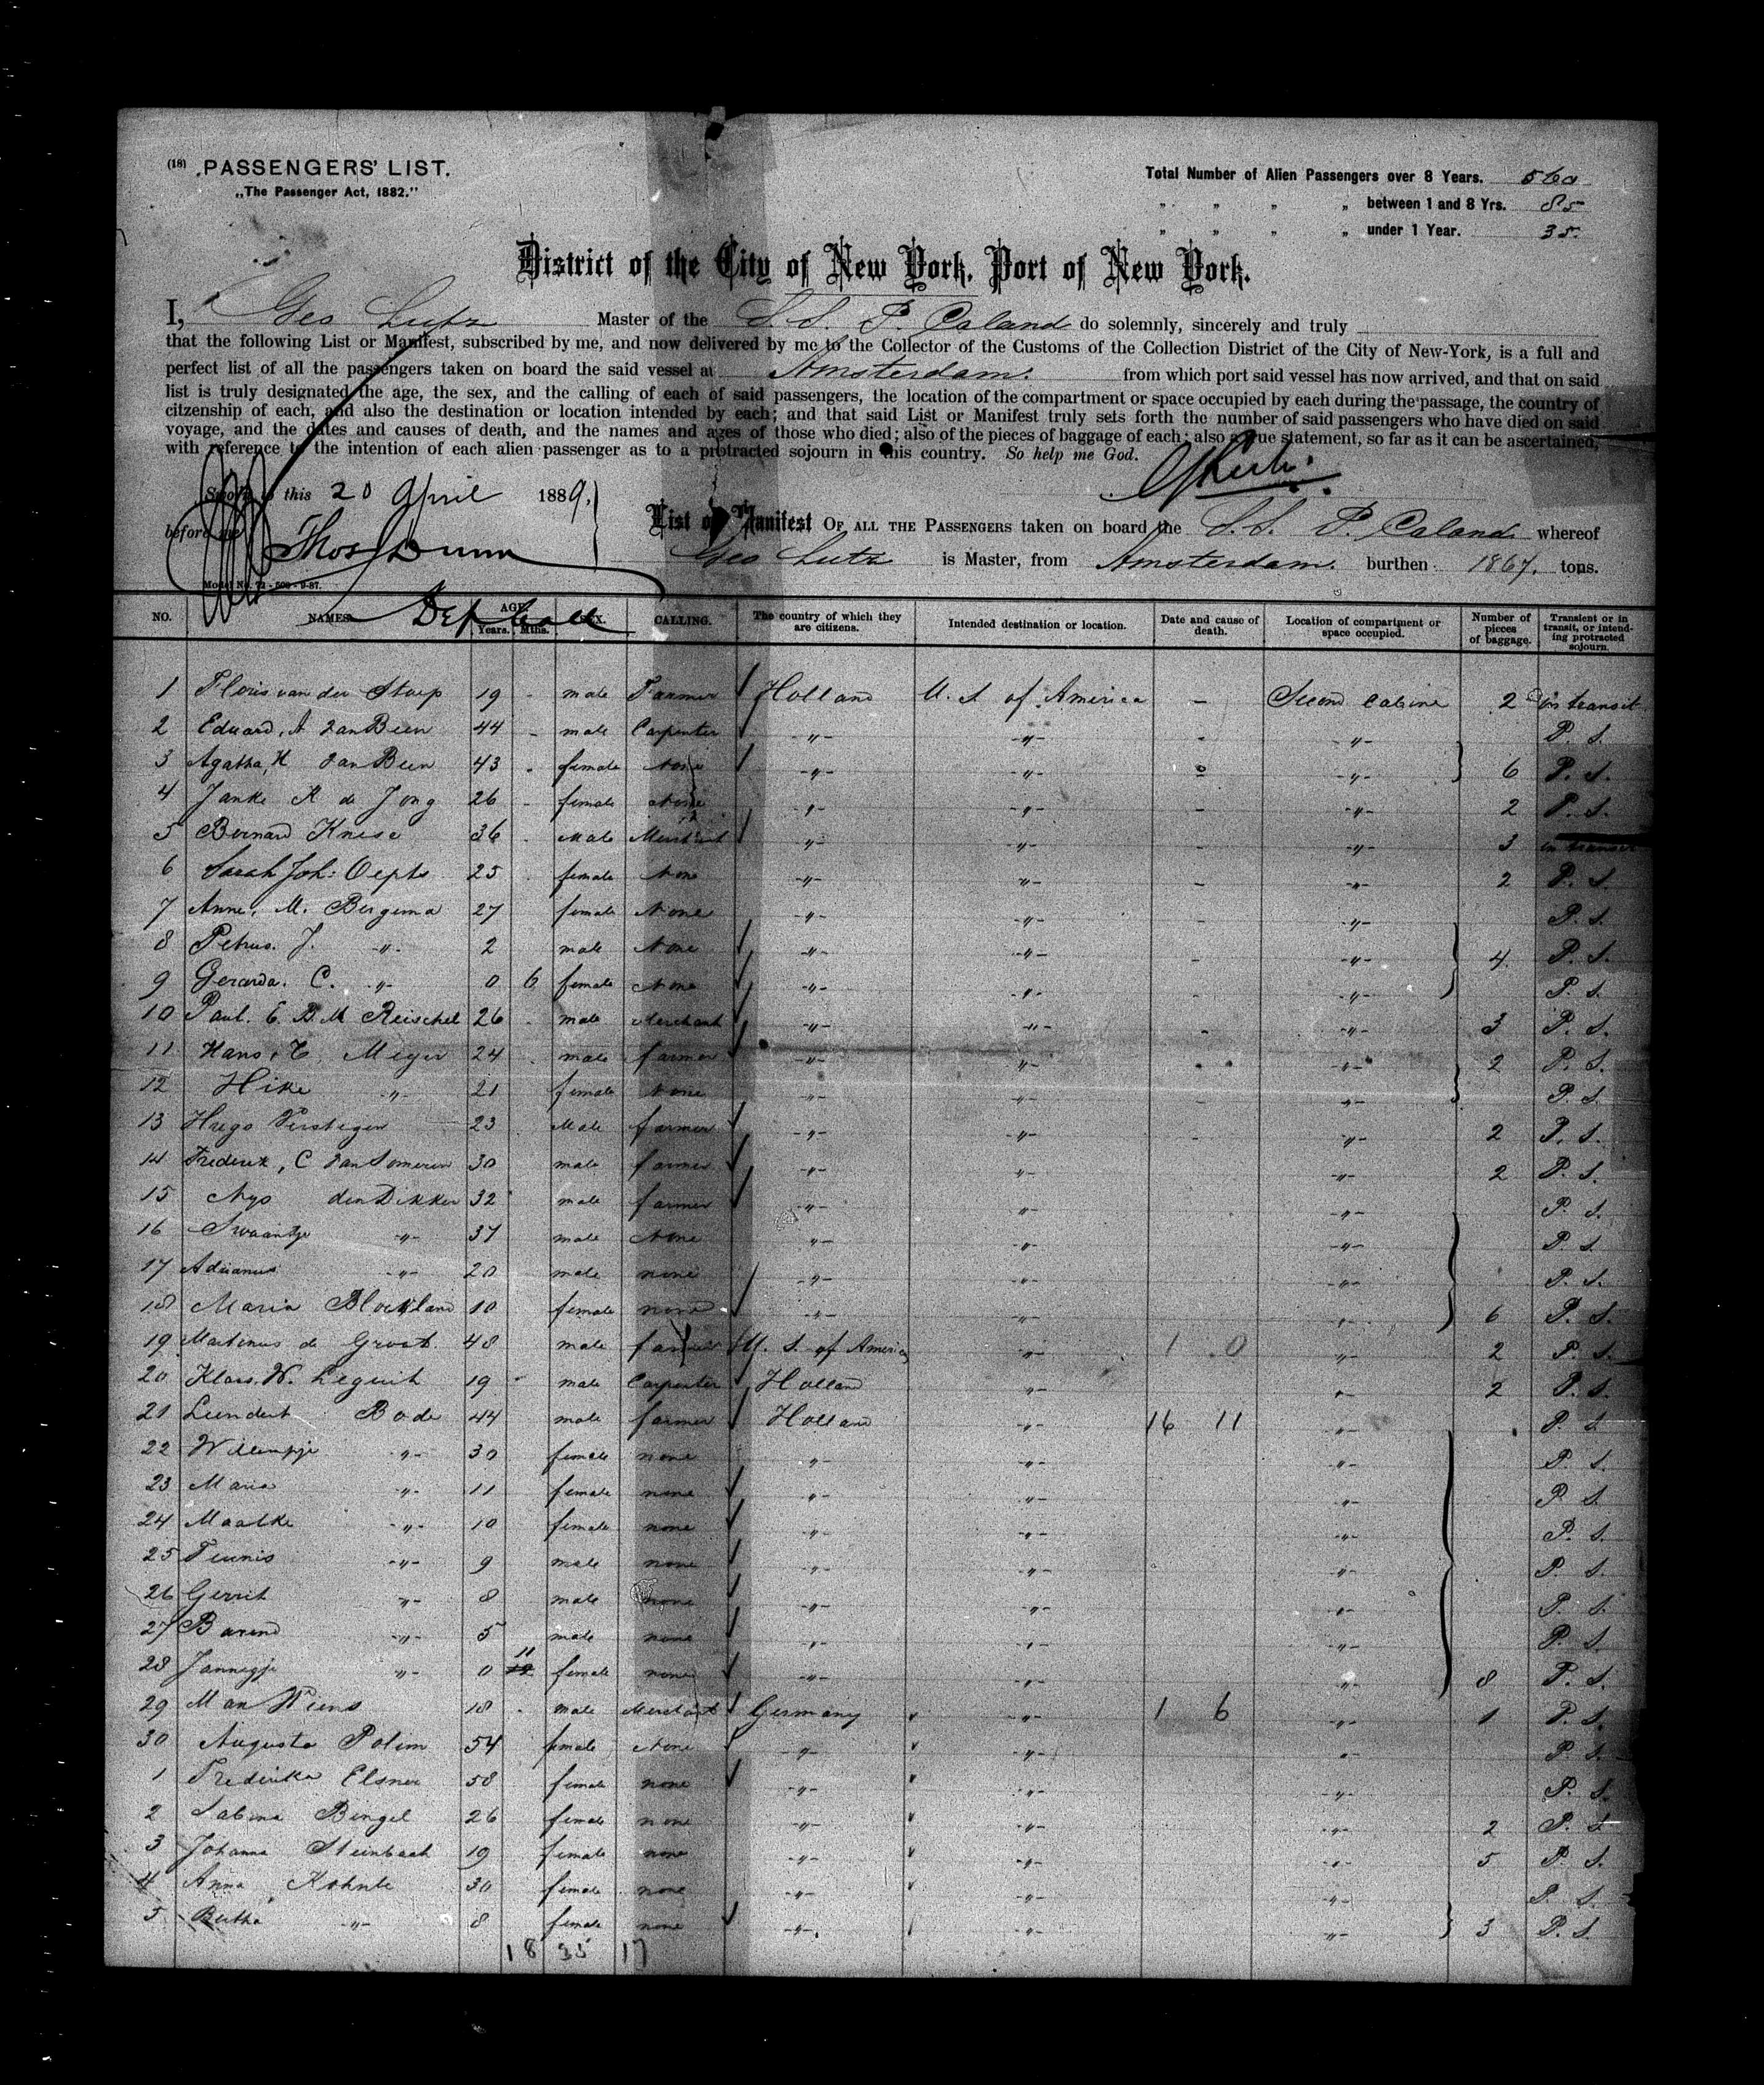 (18) PASSENGERS' LIST.
„The Passenger Act, 1882."
Total Number of Alien Passengers over 8 Years. 560
„ „ „ „ between 1 and 8 Yrs. 85
„ „ „ „ under 1 Year. 35.
District of the City of New York, Port of New York.
I, Geo Lutz Master of the S. S. P. Caland do solemnly, sincerely and truly
that the following List or Manifest, subscribed by me, and now delivered by me to the Collector of the Customs of the Collection District of the City of New-York, is a full and
perfect list of all the passengers taken on board the said vessel at Amsterdam. from which port said vessel has now arrived, and that on said
list is truly designated the age, the sex, and the calling of each of said passengers, the location of the compartment or space occupied by each during the passage, the country of
citzenship of each, and also the destination or location intended by each; and that said List or Manifest truly sets forth the number of said passengers who have died on said
voyage, and the dates and causes of death, and the names and ages of those who died; also of the pieces of baggage of each; also a true statement, so far as it can be ascertained,
with reference to the intention of each alien passenger as to a protracted sojourn in this country. So help me God.
Sworn to this 20 April 1889.
before me Thos Dunn
Dep Coll
List or Manifest OF ALL THE PASSENGERS taken on board the S. S. P. Caland whereof
Geo Lutz is Master, from Amsterdam. burthen 1867. tons.
NO. NAMES AGE. Years. Mths. SEX. CALLING. The country of which they are citizens. Intended destination or location. Date and cause of death. Location of compartment or space occupied. Number of pieces of baggage. Transient or in transit, or intending protracted sojourn.
1 Floris van der Stoep 19 - male Faarmer Holland U. S. of America - Second Cabine 2 in transit
2 Eduard, A van Been 44 - male Carpenter -"- -"- - -"- P. S.
3 Agatha, H van Been 43 - female None -"- -"- -"- 6 P. S.
4 Janke R de Jong 26 - female None -"- -"- - -"- 2 P. S.
5 Bernard Knese 36 - Male Merchant -"- -"- - -"- 3 in transit
6 Sarah Joh: Oepts 25 female None -"- -"- - -"- 2 P. S.
7 Anne, M. Bergema 27 female None -"- -"- - -"- P. S.
8 Petrus. J. -"- 2 male None -"- -"- - -"- 4 P. S.
9 Gerarda. C. -"- 0 6 female None -"- -"- -"- P. S.
10 Paul. E. B. M Reischel 26 - male Merchant -"- -"- - -"- 3 P. S.
11 Hans, C. Meyer 24 - male farmer -"- -"- -"- 2 P. S.
12 Hike -"- 21 female None -"- -"- -"- P. S.
13 Hugo Verstegen 23 Male farmer -"- -"- -"- 2 P. S.
14 Frederik, C van Someren 30 male farmer -"- -"- -"- 2 P. S.
15 den Dikker 32 male farmer -"- -"- -"- P. S.
16 Swaantje -"- 37 male None -"- -"- -"- P. S.
17 Adrianus -"- 20 male none -"- -"- -"- P. S.
18 Maria Blokland 10 female none -"- -"- -"- 6 P. S.
19 Martinus de Groot. 48 male farmer U. S. of America -"- 1 0 -"- 2 P. S.
20 Klaas. W. Leguit 19 male Carpenter Holland -"- -"- 2 P. S.
21 Leendert Bode 44 male farmer Holland -"- 16 11 -"- P. S.
22 Willempje -"- 30 female none -"- -"- -"- P. S.
23 Maria -"- 11 female none -"- -"- -"- P. S.
24 Maatke -"- 10 female none -"- -"- -"- P. S.
25 Teunis -"- 9 male none -"- -"- -"- P. S.
26 Gerrit -"- 8 male none -"- -"- -"- P. S.
27 Barend -"- 5 male none -"- -"- -"- P. S.
28 Jannegje -"- 0 11 female none -"- -"- -"- 8 P. S.
29 Max Wiens 18 - male Merchant Germany -"- 1 6 -"- 1 P. S.
30 Augusta Polim 54 female None -"- -"- -"- P. S.
1 Frederika Elsner 58 female none -"- -"- -"- P. S.
2 Sabina Bingel 26 female none -"- -"- -"- 2 P. S.
3 Johanna Steinbach 19 female none -"- -"- -"- 5 P. S.
4 Anna Kohnte 30 female none -"- -"- -"- P. S.
5 Bertha -"- 8 female none -"- -"- -"- 3 P. S.
18 35 17